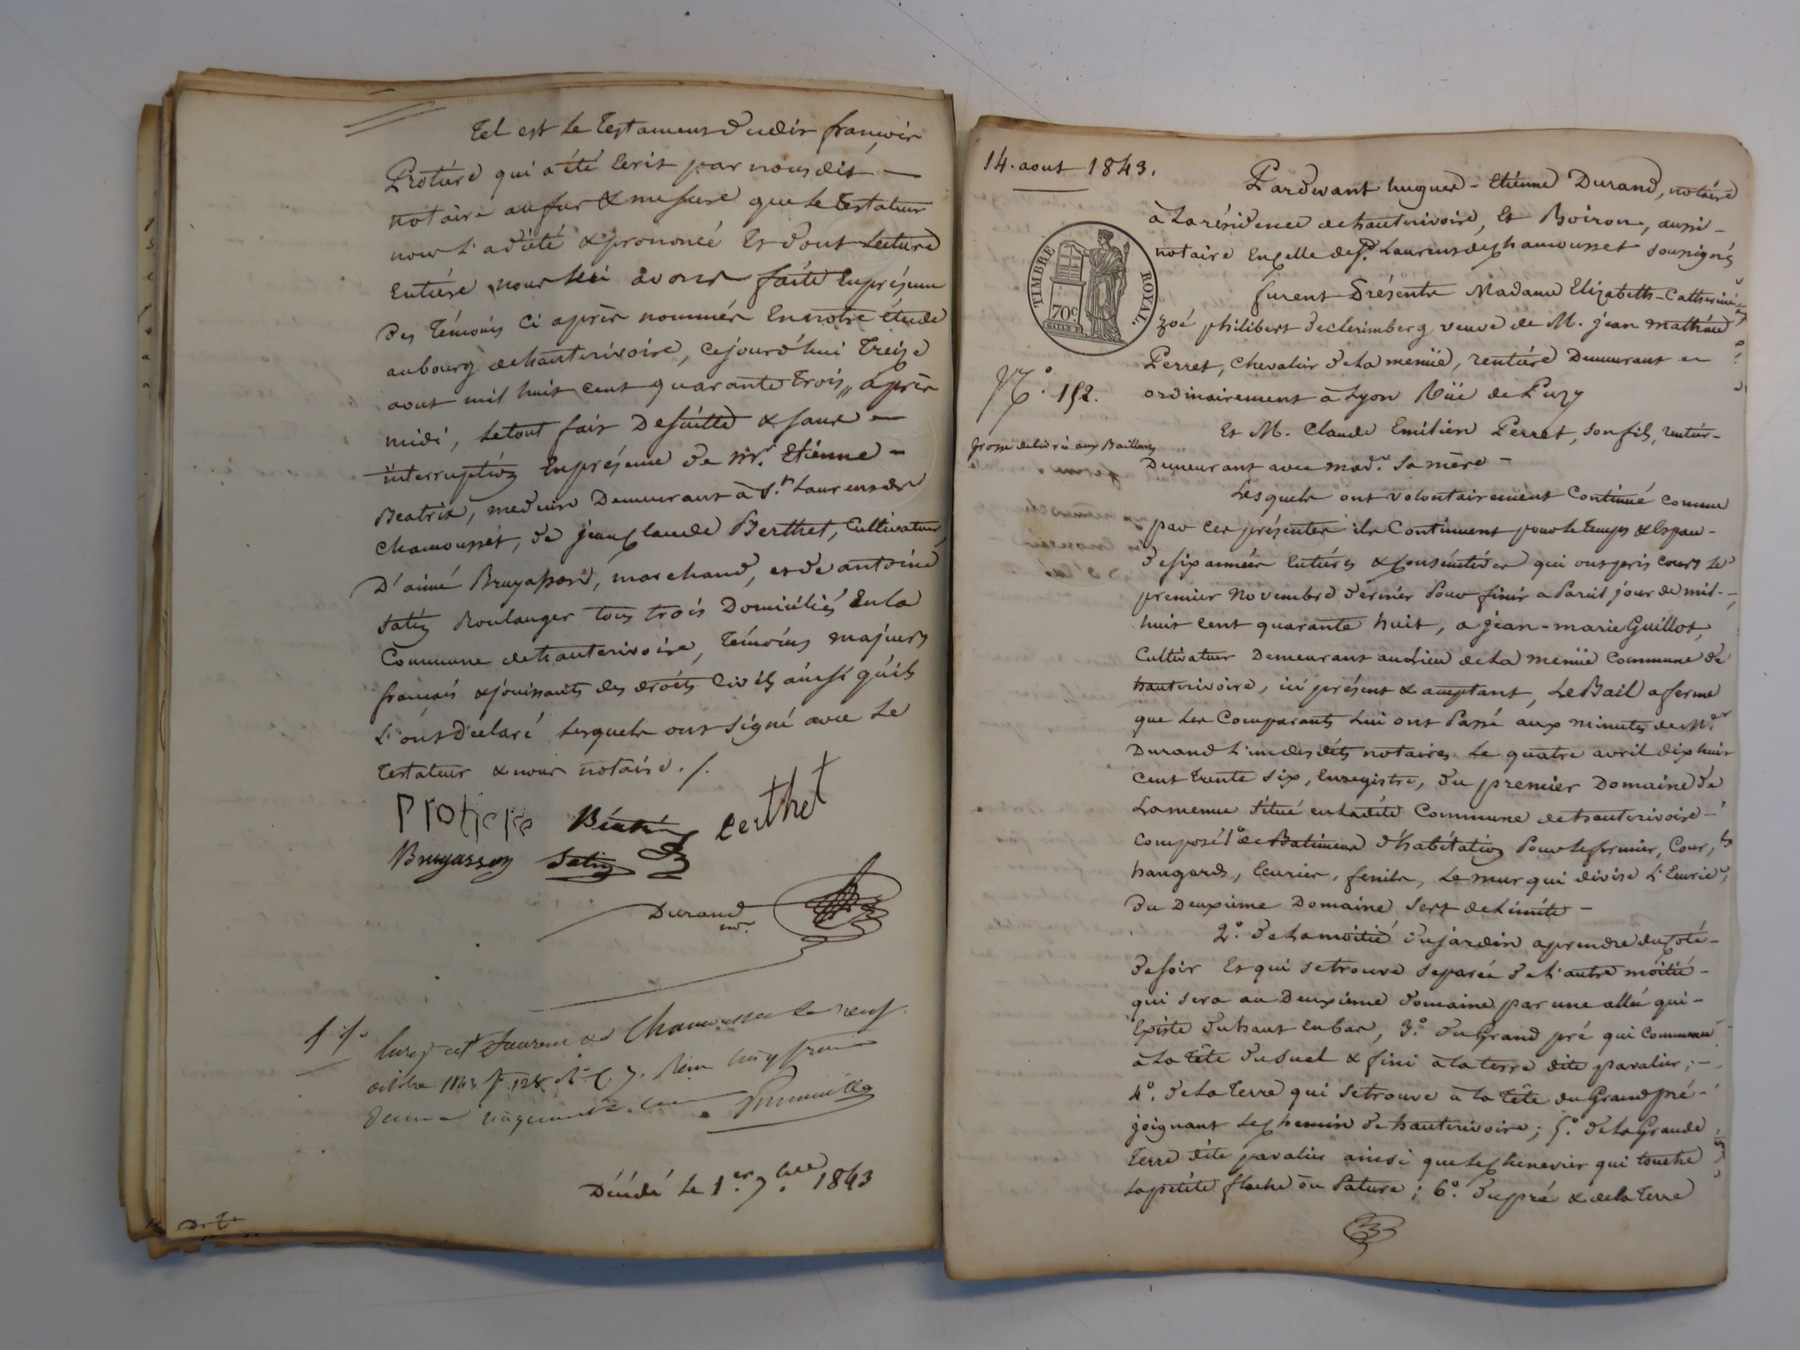 Tel est le Testament dudit françois
Protière qui a été Ecrit par nous dit
notaire au fur & mesure que le Testateur
nous l'a dicté & prononcé Et dont Lecture
Entière nous lui avons faite En présence
Des Témoins ci après nommés En notre étude
au bourg de hauterivoire, cejourd'hui Treize
aout mil huit cent quarante trois,, après
midi, le tout fait De suitte & sans
interruption En présence de mr. Etienne
Beatrix, medecin Demeurant à St. Laurent de
chamousset, de jean claude Berthet, Cultivateur,
D'aimé Bruyasson, marchand, et de antoine
Satin Boulanger tous trois Domiciliés En la
Commune de hauterivoire, Témoins majeurs
français & jouissants des droits civils ainsi qu'ils
L'ont Déclaré Lesquels ont signé avec Le
Testateur & nous notaire ./.
Protiere Béatrix Berthet
Bruyasson Satin
Durand
nre.
Enreg. à St Laurent de Chamousset le neuf
octobre 1843 f. 128
Décédé le 1er 7bre 1843
14. aout 1843.
TIMBRE ROYAL.
70c.
No. 152.
Grosse délivrée aux Bailleurs
Pardevant hugues-Etienne Durand, notaire
à La résidence de hauterivoire, Et Boiron, aussi
notaire En celle de St. Laurent de chamousset soussignés
furent Présents Madame Elizabeth-Catherine
zoé philibert Declerimberg veuve de M. jean mathieu
Perret, Chevalier de La menüe, rentière Demeurant
ordinairement à Lyon Rüe de Puzy
Et M. Claude Emilien Perret, son fils, rentier
Demeurant avec made. sa mère
Lesquels ont volontairement Continué comme
par ces présentes ils Continuent pour le temps & Espace
de six années Entières & consécutives qui ont pris cours le
premier Novembre dernier Pour finir a Pareil jour de mil
huit cent quarante huit, a jean-marie Guillot,
Cultivateur Demeurant au Lieu de La menüe Commune de
hauterivoire, ici présent & acceptant, Le Bail a ferme
que Les Comparants Lui ont Passé aux minutes de Me
Durand L'un desdits notaires Le quatre avril dix huit
cent trente six, Enregistré, du premier Domaine de
La menue situé en Ladite Commune de hauterivoire
composé 1o de Batiments d'habitation Pour Le fermier, Cour,
hangards, Ecuries, fenils, Le mur qui divise L'Ecurie
du Deuxième Domaine sert de Limite
2o. de La moitié du jardin a prendre du coté
de soir Et qui se trouve séparée de L'autre moitié
qui sera au Deuxième domaine par une allée qui
Existe du haut en bas, 3o. du Grand pré qui commence
à La tête du suel & fini à La terre dite pavalier;
4o. de La Terre qui se trouve à La tête du Grand pré
joignant Le chemin de hauterivoire; 5o. de La Grande
Terre dite pavalier ainsi que Le chenevier qui touche
La petite flache ou Pature; 6o. du pré & de la terre